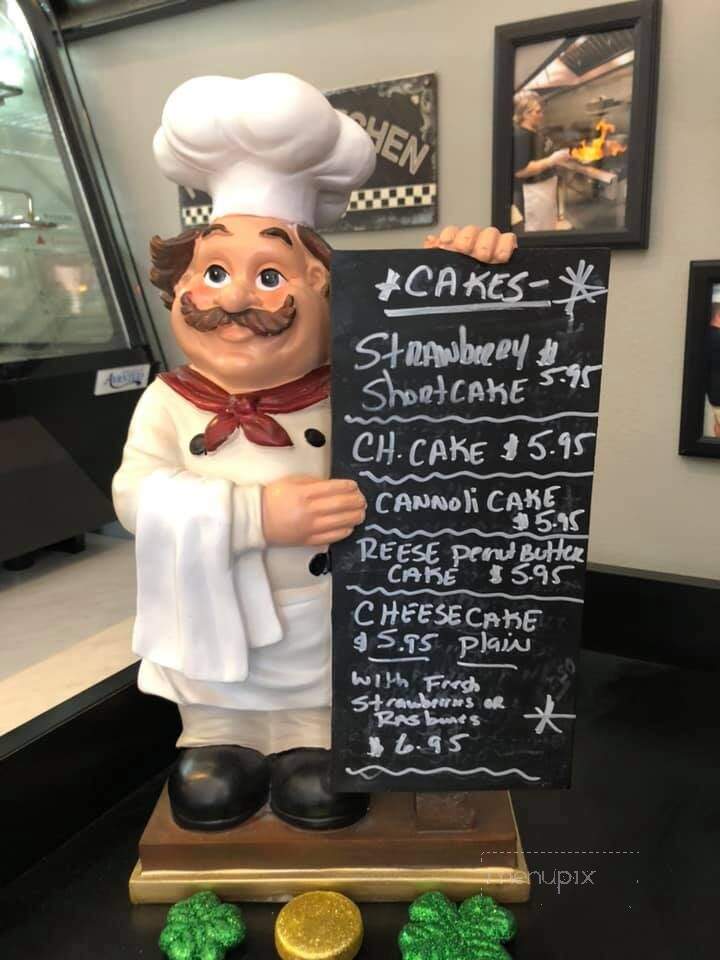 CHEN
* CAKES - *
Strawberry $
ShortCAKE 5.95
CH. CAKE $5.95
CANNOLi CAKE
$5.95
REESE peanut Butter
CAKE $5.95
CHEESECAKE
$5.95 plAiN
With Fresh
Strawberries OR
$6.95
menupix